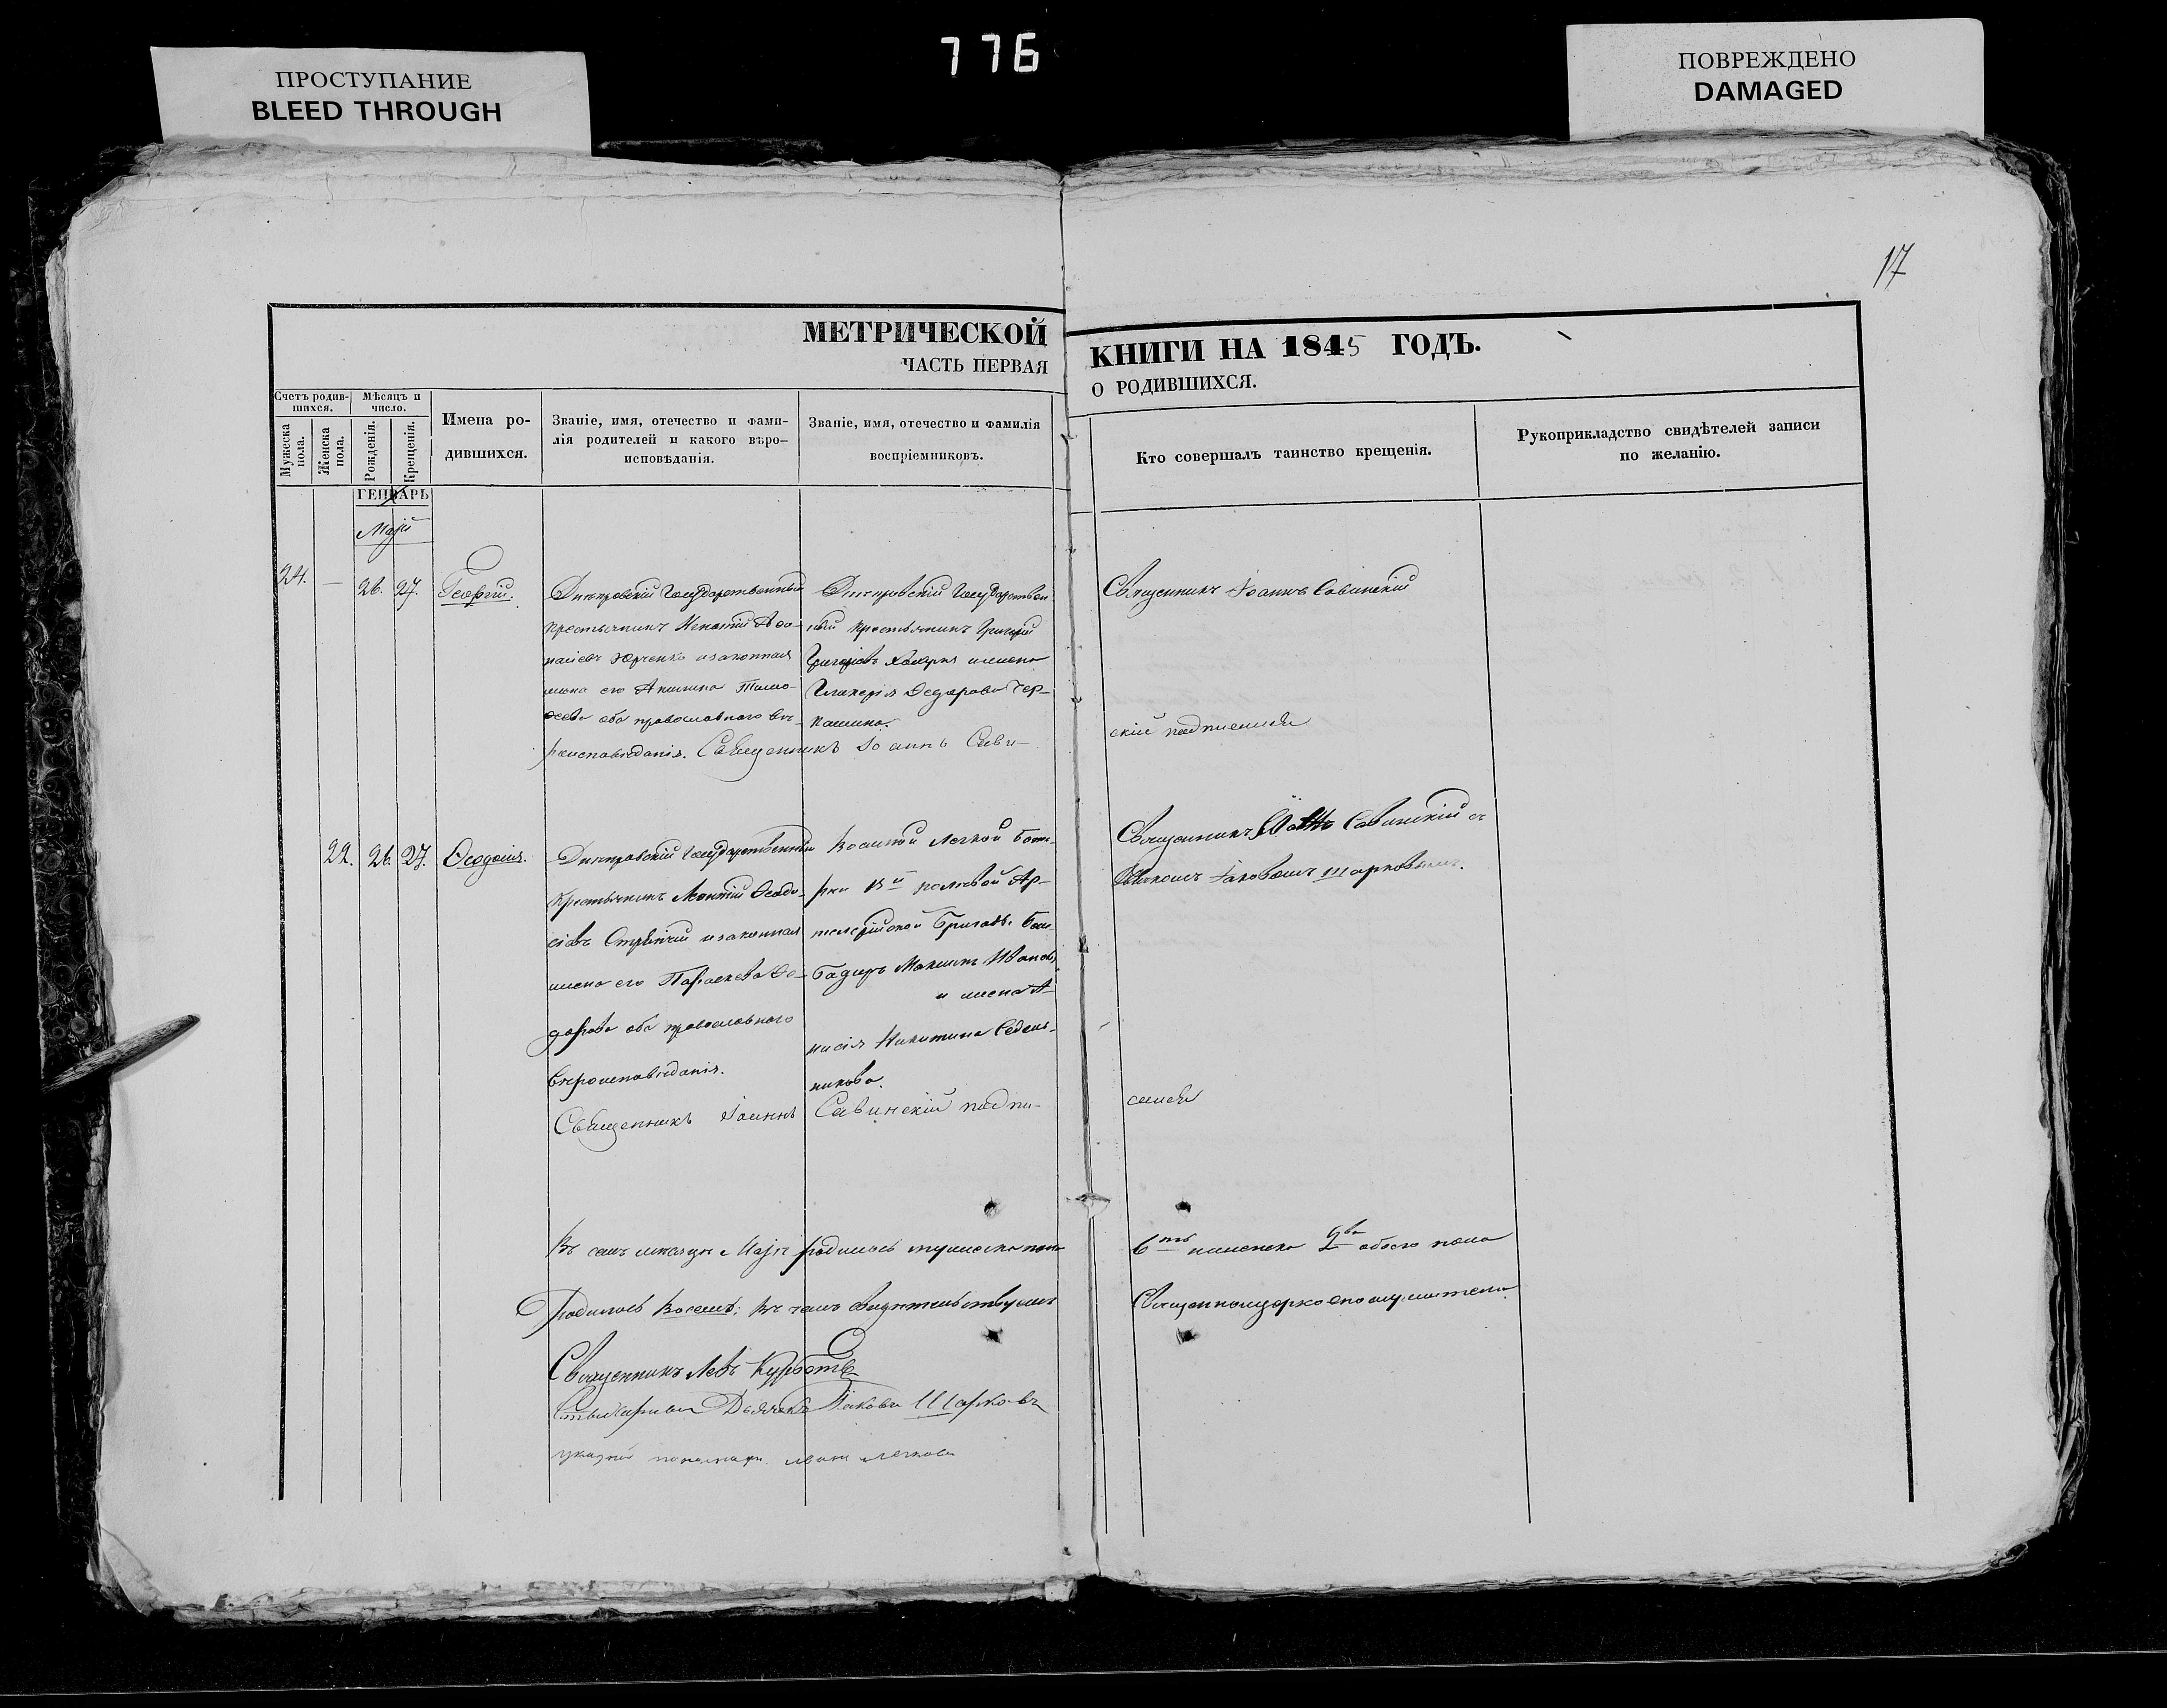 776
ПРОСТУПАНИЕ
BLEED THROUGH
ПОВРЕЖДЕНО
DAMAGED
17
МЕТРИЧЕСКОЙ КНИГИ НА 1845 ГОДЪ.
ЧАСТЬ ПЕРВАЯ О РОДИВШИХСЯ.
Счетъ родив-
шихся.
Мужеска пола.
Женска пола.
Мѣсяцъ и
число.
Рожденія.
Крещенія.
Имена ро-
дившихся.
Званіе, имя, отечество и фами-
лія родителей и какого вѣро-
исповѣданія.
Званіе, имя, отечество и фамилія
воспріемниковъ.
Кто совершалъ таинство крещенія.
Рукоприкладство свидѣтелей записи
по желанію.
ГЕНВАРЬ
Маій
24. — 26. 27. Георгій.
Днепровскій Государственный
крестьянинъ Игнатій
Юрченко и законная
жена его Акилина Тимо-
ѳеева оба православнаго вѣ-
роисповѣданія.
Днепровскій Государствен
ный крестьянинъ Григорій
Григорьевъ и жена
Гликерія Ѳедорова Чер-
кашина.
Священникъ Іоаннъ Савинскій
Священникъ Іоаннъ Сави-
скій подписался
22. 26. 27. Ѳеодосія.
Днепровскій Государственный
крестьянинъ
и законная
жена его Параскева Ѳе-
дорова оба православнаго
вѣроисповѣданія.
Легкой Бата-
реи 13й полевой Ар-
тилерійской Бригады Бом
бадиръ Максимъ Ивановъ
и жена А-
нисія Никитина Седель-
никова.
Священникъ Савинскій съ
Іаковомъ Шарковымъ.
Священникъ Іоаннъ Савинскій подпи-
сался
Въ семъ месяце Маје родилось мужеска пола
6ть женска 2ва обоего пола
родилось восемь; въ чемъ свидетельствуемъ
Священноцерковнослужители.
Священникъ Левъ Курбетъ
Стихарный Дьячекъ Іаковъ Шарковъ
указной пономарь